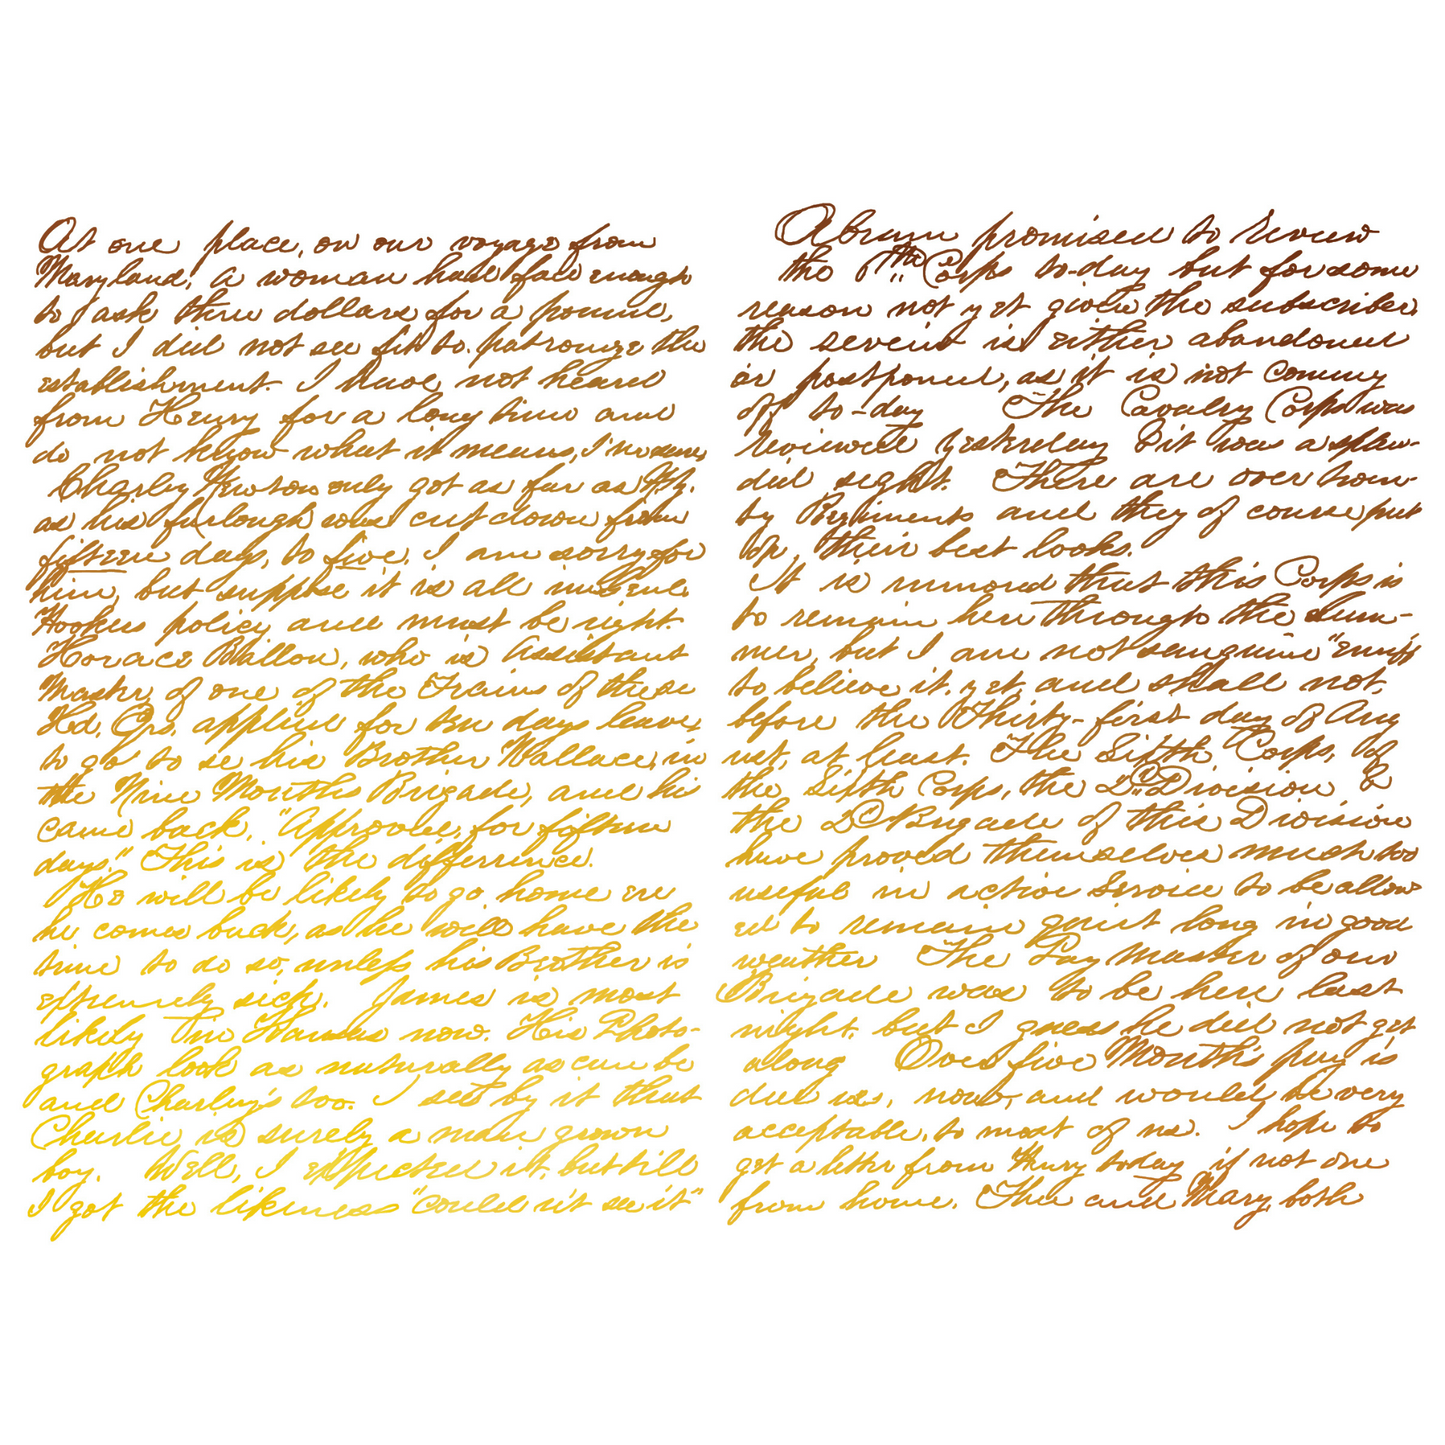 At one place, on our voyage from
Maryland, a woman had face enough
to ask three dollars for a pound,
but I did not see fit to patronize the
establishment. I have not heard
from Henry for a long time and
do not know what it means, I'm sure,
Charley Newton only got as far as
as his furlough was cut down from
fifteen days, to five. I am sorry for
him, but suppose it is all in Genl.
Hookers policy and must be right.
Horace Ballou, who is Assistant
Master of one of the Trains of these
Hd. Qrs. applied for ten days leave,
to go to se his Brother Wallace, in
the Nine Months Brigade, and his
came back, "Approved, for fifteen
days." This is the difference.
He will be likely to go home ere
he comes back, as he will have the
time to do so, unless his Brother is
extremely sick. James is most
likely in Kansas now. His Photo-
graph look as naturally as can be
and Charley's too. I see by it that
Charlie is surely a man grown
boy. Well, I expected it, but till
I got the likeness "couldn't see it"
Abram promised to review
the Corps to-day but for some
reason not yet given the subscriber,
the review is either abandoned
or postponed, as it is not coming
off to-day The Cavalry Corps was
reviewed yesterday & it was a splen-
did sight. There are over twen-
ty Regiments and they of course put
on, their best looks.
It is rumored that this Corps is
to remain here through the Sum-
mer, but I am not sanguine "enuff"
to believe it, yet, and shall not,
before the Thirty-first day of Aug
ust, at least. The Sixth Corps, of
the Sixth Corps, the 2d Division &
the 2d Brigade of this Division
have proved themselves much too
useful in active Service to be allow
ed to remain quiet long in good
weather The Pay Master of our
Brigade was to be here last
night, but I guess he did not get
along Over five Month's pay is
due us, now, and would be very
acceptable, to most of us. I hope to
get a letter from Henry to-day if not one
from home. Thee and Mary, both